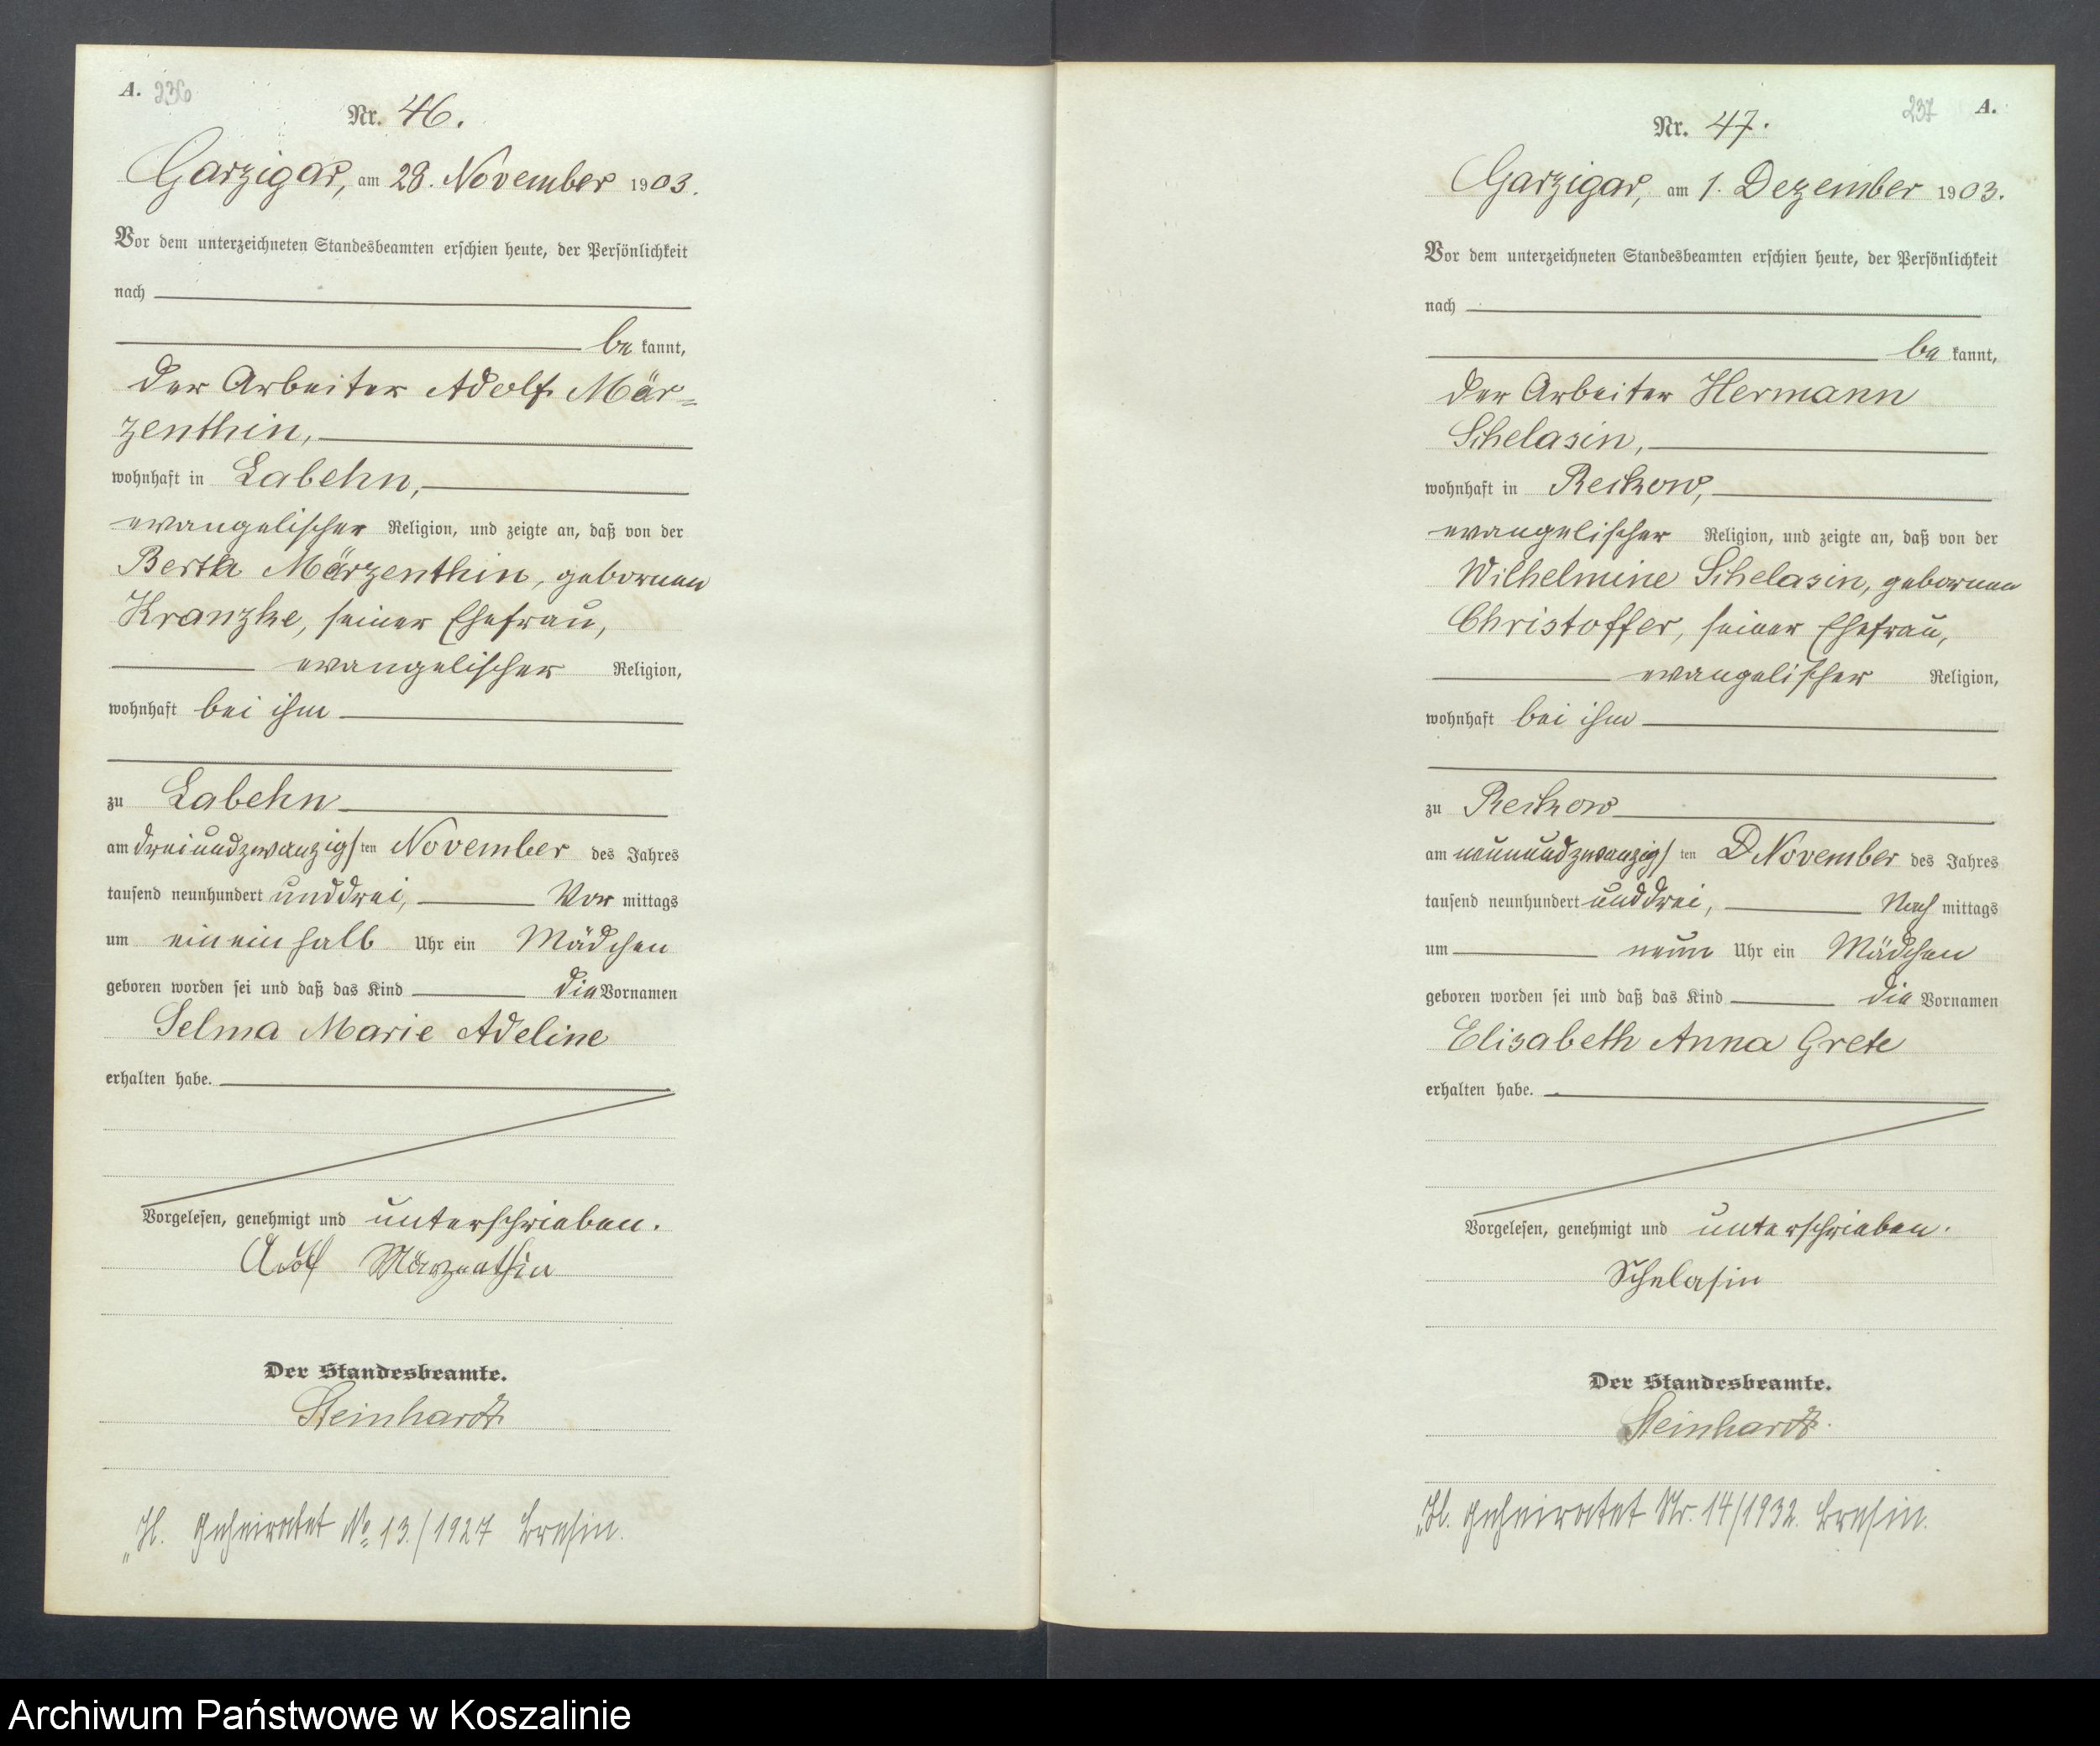 A. 236
Nr. 46.
Garzigar, am 28. November 1903.
Vor dem unterzeichneten Standesbeamten erschien heute, der Persönlichkeit
nach
be kannt,
der Arbeiter Adolf Mär=
zenthin,
wohnhaft in Labehn,
evangelischer Religion, und zeigte an, daß von der
Bertha Märzenthin, gebornen
Kranzke, seiner Ehefrau,
evangelischer Religion,
wohnhaft bei ihm
zu Labehn
am dreiundzwanzigsten November des Jahres
tausend neunhundert unddrei, Vor mittags
um ein einhalb Uhr ein Mädchen
geboren worden sei und daß das Kind die Vornamen
Selma Marie Adeline
erhalten habe.
Vorgelesen, genehmigt und unterschrieben.
Adolf Märzenthin
Der Standesbeamte.
Steinhardt
H. geheiratet No 13./1927 Bresin.
237 A.
Nr. 47.
Garzigar, am 1. Dezember 1903.
Vor dem unterzeichneten Standesbeamten erschien heute, der Persönlichkeit
nach
be kannt,
der Arbeiter Hermann
Schelasin,
wohnhaft in Reckow,
evangelischer Religion, und zeigte an, daß von der
Wilhelmine Schelasin, gebornen
Christoffer, seiner Ehefrau,
evangelischer Religion,
wohnhaft bei ihm
zu Reckow
am neunundzwanzigsten November des Jahres
tausend neunhundert unddrei, Nach mittags
um neun Uhr ein Mädchen
geboren worden sei und daß das Kind die Vornamen
Elisabeth Anna Grete
erhalten habe.
Vorgelesen, genehmigt und unterschrieben.
Schelasin
Der Standesbeamte.
Steinhardt.
H. geheiratet Nr. 14/1932. Bresin.
Archiwum Państwowe w Koszalinie